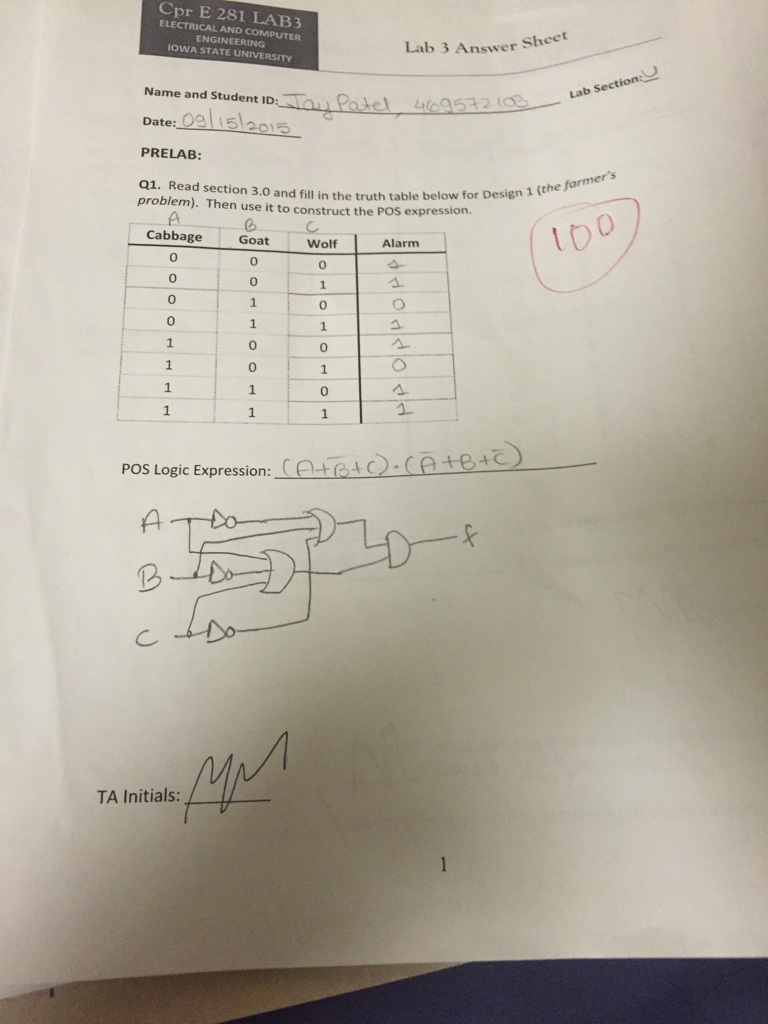 Cpr E 281 LAB3
ELECTRICAL AND COMPUTER
ENGINEERING
IOWA STATE UNIVERSITY
Lab 3 Answer Sheet
Name and Student ID: Jay Patel, 469572103 Lab Section: U
Date: 09/15/2015
PRELAB:
Q1. Read section 3.0 and fill in the truth table below for Design 1 (the farmer's
problem). Then use it to construct the POS expression.
100
A B C
Cabbage Goat Wolf Alarm
0 0 0 1
0 0 1 1
0 1 0 0
0 1 1 1
1 0 0 1
1 0 1 0
1 1 0 1
1 1 1 1
POS Logic Expression: (A+B̅+C)·(A̅+B+C̅)
A
f
B
C
TA Initials:
1